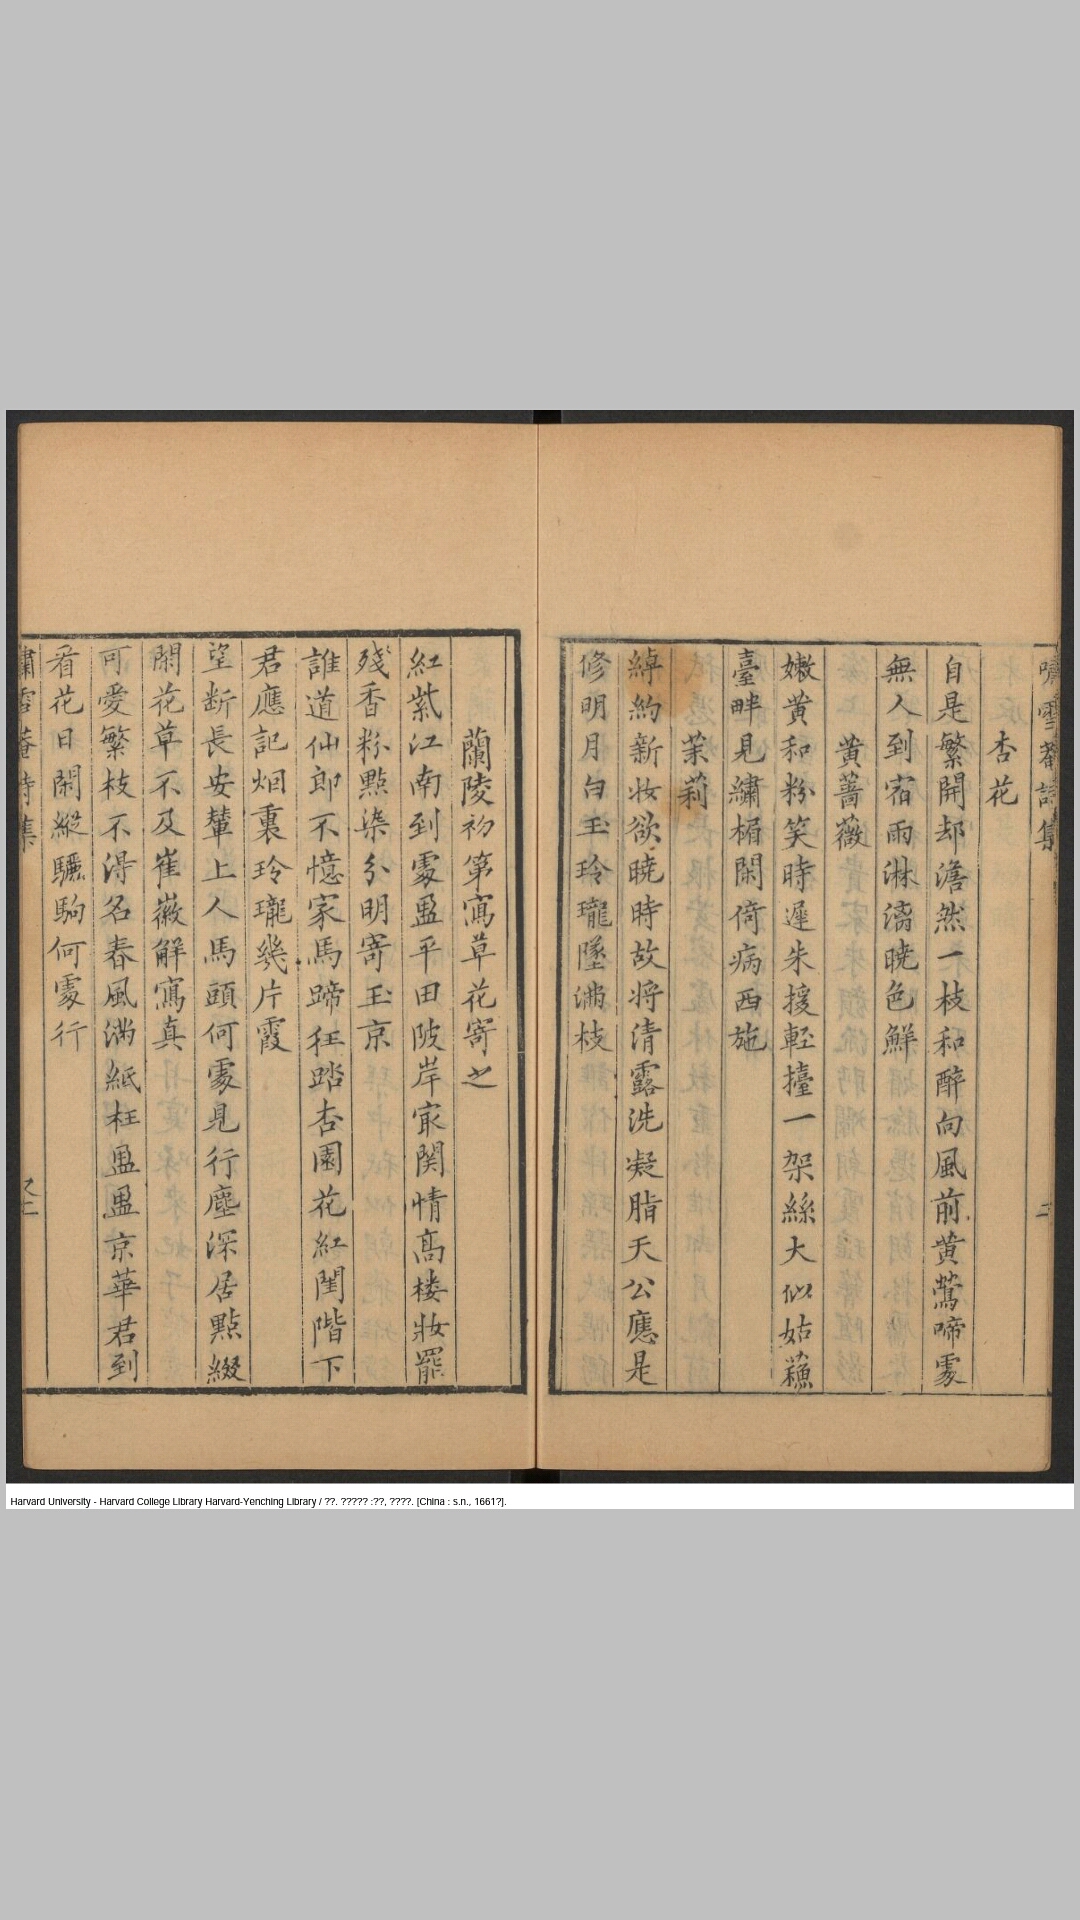 嘯雪菴詩集
二
杏花
自是繁開却澹然一枝和醉向風前黄鶯啼處
無人到宿雨淋漓曉色鮮
黄薔薇
嫩黄和粉笑時遲朱援輕擡一架絲大似姑蘓
臺畔見繡楣閑倚病西施
茉莉
綽約新妆欲曉時故将清露洗凝脂天公應是
修明月白玉玲瓏墜满枝
蘭陵初第寫草花寄之
紅紫江南到處盈平田陂岸㝡関情高楼妝罷
殘香粉點染分明寄玉京
誰道仙郎不憶家馬蹄狂踏杏園花紅閨階下
君應記烟裏玲瓏幾片霞
望断長安輦上人馬頭何處見行塵深居點綴
閑花草不及崔薇解寫真
可愛繁枝不淂名春風满紙枉盈盈京華君到
看花日閑縱驪駒何處行
嘯雪菴詩集